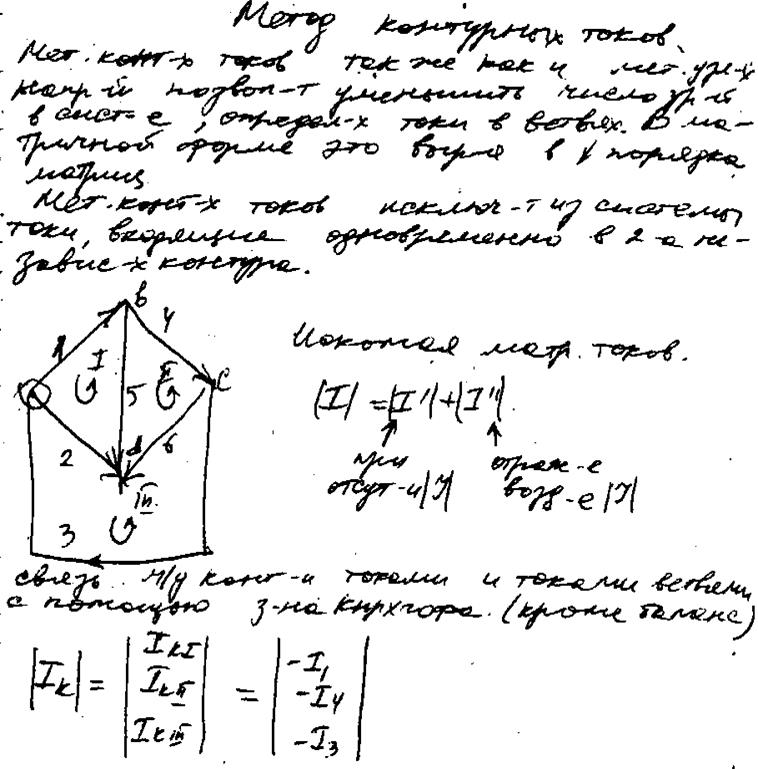 Метод контурных токов.
Мет. конт-х токов также как и мет. узл-х
напр-й позвол-т уменьшить число ур-й
в сист-е, определ-х токи в ветвях. В ма-
тричной форме это выр-ся в ↓ порядка
матриц
Мет. конт-х токов исключ-т из системы
токи, входящие одновременно в 2-а не-
завис-х контура.
B
1 4
I II C
5
2 d 6
III
3
Искомая матр. токов.
|I| = |I'| + |I''|
при отраж-е
отсут-и |J| возд-е |J|
связь м/у конт-и токами и токами ветвями
с помощью з-на Кирхгофа. (кроме баланс)
|I_k| = | I_kI I_kII I_kIII | = | -I_1 -I_4 -I_3 |